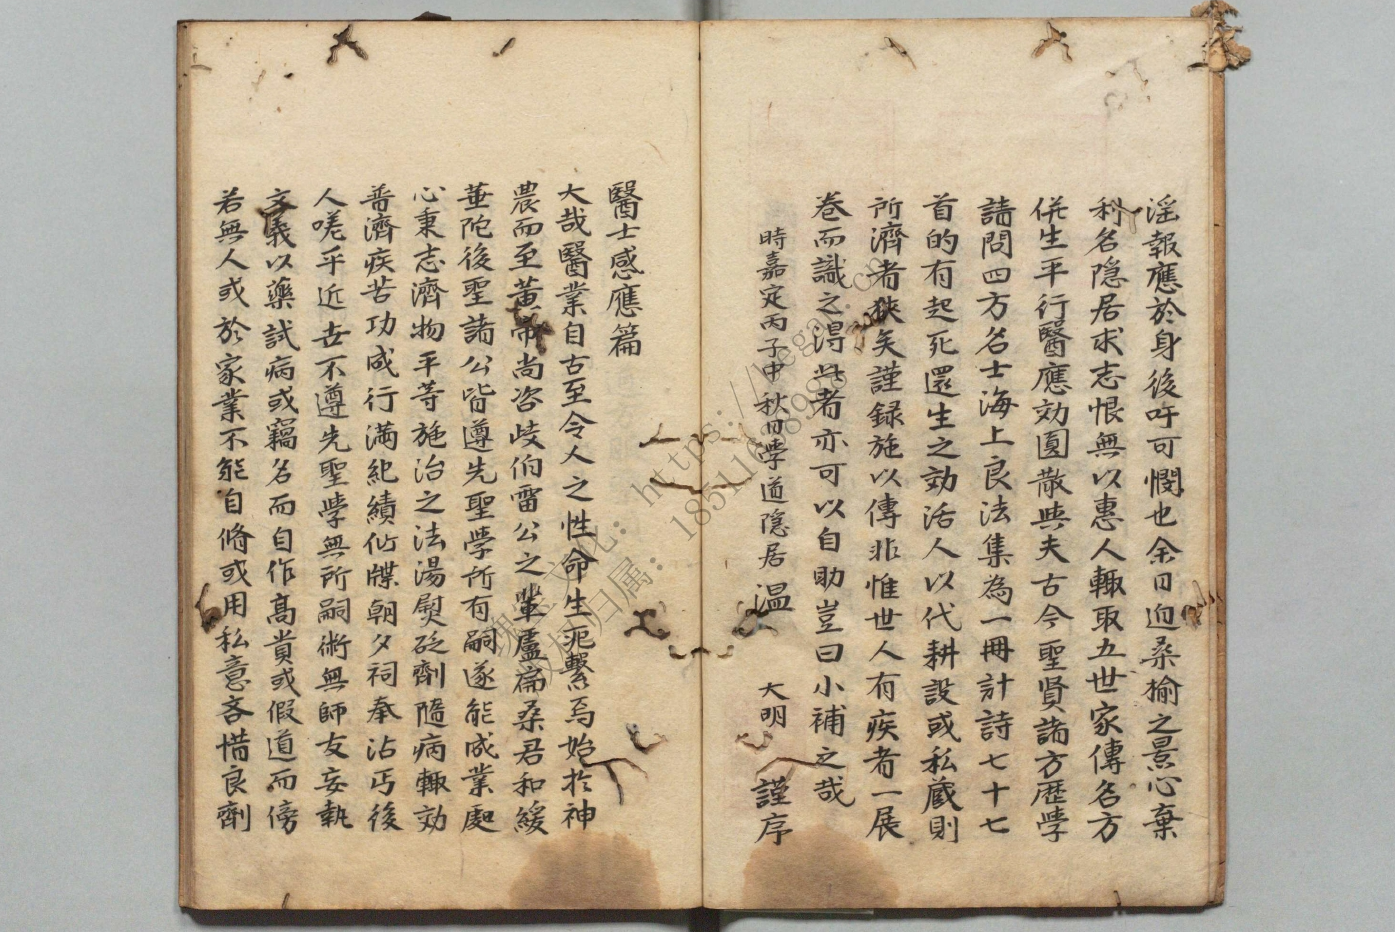 淫報應於身後吁可憫也余日迫桑榆之景心棄
利名隱居求志恨無以惠人輒取五世家傳名方
併生平行醫應効圓散與夫古今聖賢諸方歷學
請問四方名士海上良法集為一冊計詩七十七
首的有起死還生之効活人以代耕設或私蔵則
所濟者狹矣謹録施以傳非惟世人有疾者一展
卷而識之得此者亦可以自助豈曰小補之哉
時嘉定丙子中秋日學道隱居 温 大明 謹序
醫士感應篇
大哉醫業自古至今人之性命生死繫焉始於神
農而至黄帝尚咨岐伯雷公之輩盧扁桑君和緩
華陀後聖諸公皆遵先聖學所有嗣遂能成業處
心秉志濟物平等施治之法湯熨砭劑隨病輒効
普濟疾苦功成行滿紀績仙牒朝夕祠奉沾丐後
人嗟乎近世不遵先聖學無所嗣術無師友妄執
文義以藥試病或竊名而自作高貴或假道而傍
若無人或於家業不能自脩或用私意吝惜良劑
https://lega
.cn
版权归属:
1851168989